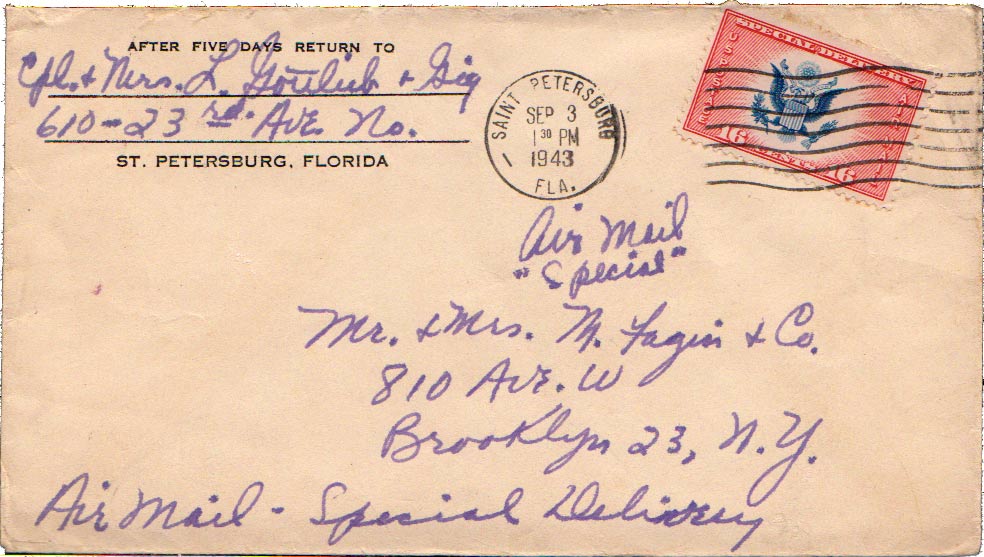 AFTER FIVE DAYS RETURN TO
Cpl. & Mrs. L. Gottlieb & Gig
610-23rd Ave. No.
ST. PETERSBURG, FLORIDA
SAINT PETERSBURG
SEP 3
1 30 PM
1943
FLA.
SPECIAL DELIVERY
AIR MAIL
16 CENTS 16
Air Mail
"Special"
Mr. & Mrs. M. Fagin & Co.
810 Ave. W
Brooklyn 23, N.Y.
Air Mail - Special Delivery